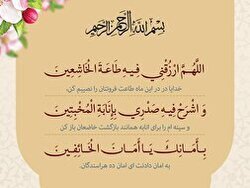 بسم الله الرحمن الرحیم
اللَّهُمَّ ارْزُقْنِي فِيهِ طَاعَةَ الْخَاشِعِينَ
خدایا در در این ماه طاعت فروتنان را نصیبم کن،
وَ اشْرَحْ فِيهِ صَدْرِي بِإِنَابَةِ الْمُخْبِتِينَ
و سینه ام را برای انابه همانند بازگشت خاضعان باز کن،
بِأَمَانِكَ يَا أَمَانَ الْخَائِفِينَ
به امان دادنت ای امان ده هراسندگان.